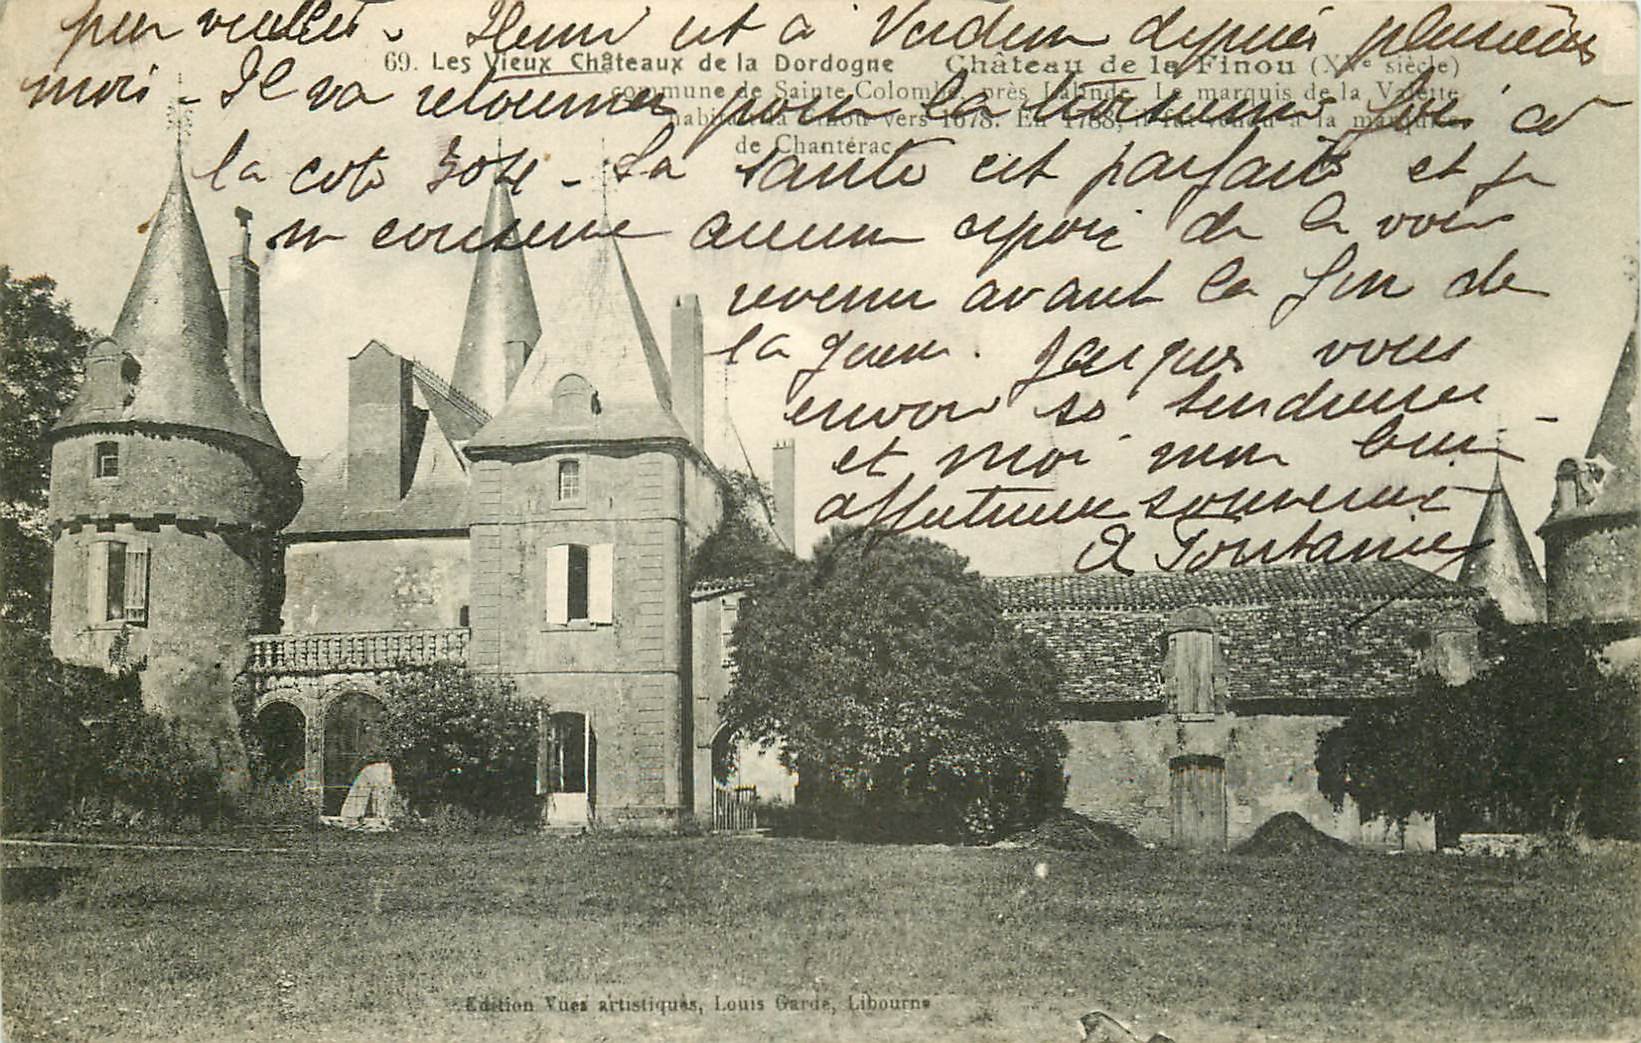 peu vieillis. Henri est à Verdun depuis plusieurs
mois. Il va retourner pour la troisième fois à
la cote 304. Sa santé est parfaite et je
ne conserve aucun espoir de le voir
revenir avant la fin de
la guerre. Jacques vous
envoie ses tendresses
et moi mon bien
affectueux souvenir
A Fontanier
69. Les Vieux Châteaux de la Dordogne Château de la Finou (XVe siècle)
commune de Sainte Colombe, près Lalinde. Le marquis de la Valette
habitait la Finou vers 1678. En 1788, il fut vendu à la marquise
de Chantérac
Edition Vues artistiques, Louis Garde, Libourne